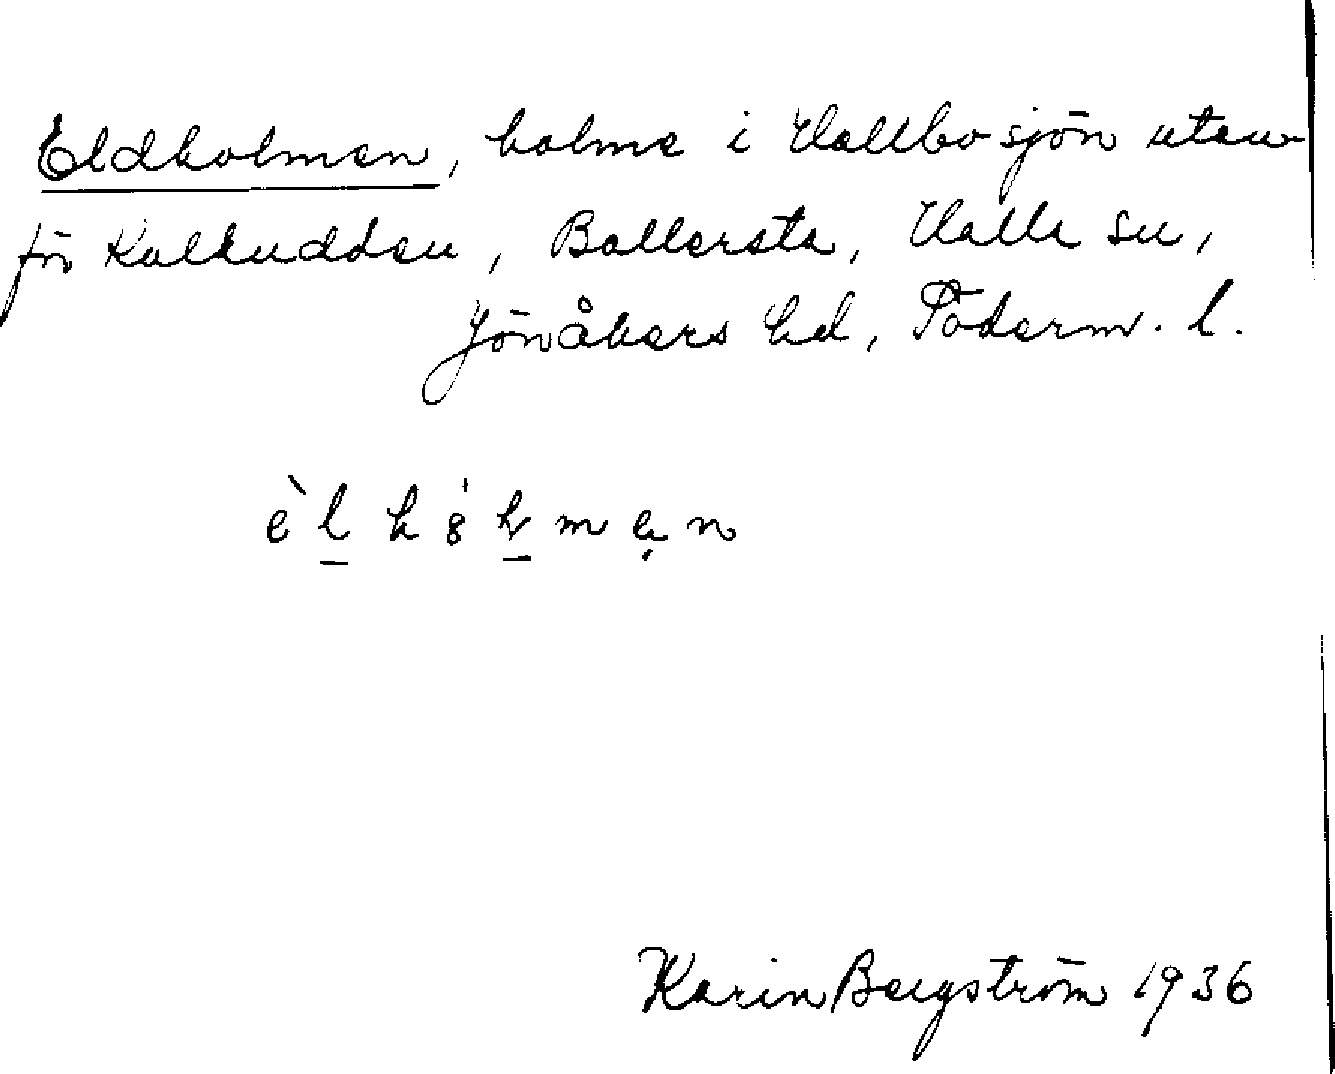 Eldholmen, holme i Hallbosjön utan-
för Kalkudden, Ballersta, Halla sn,
Jönåkers hd, Söderm. l.
Karin Bergström 1936